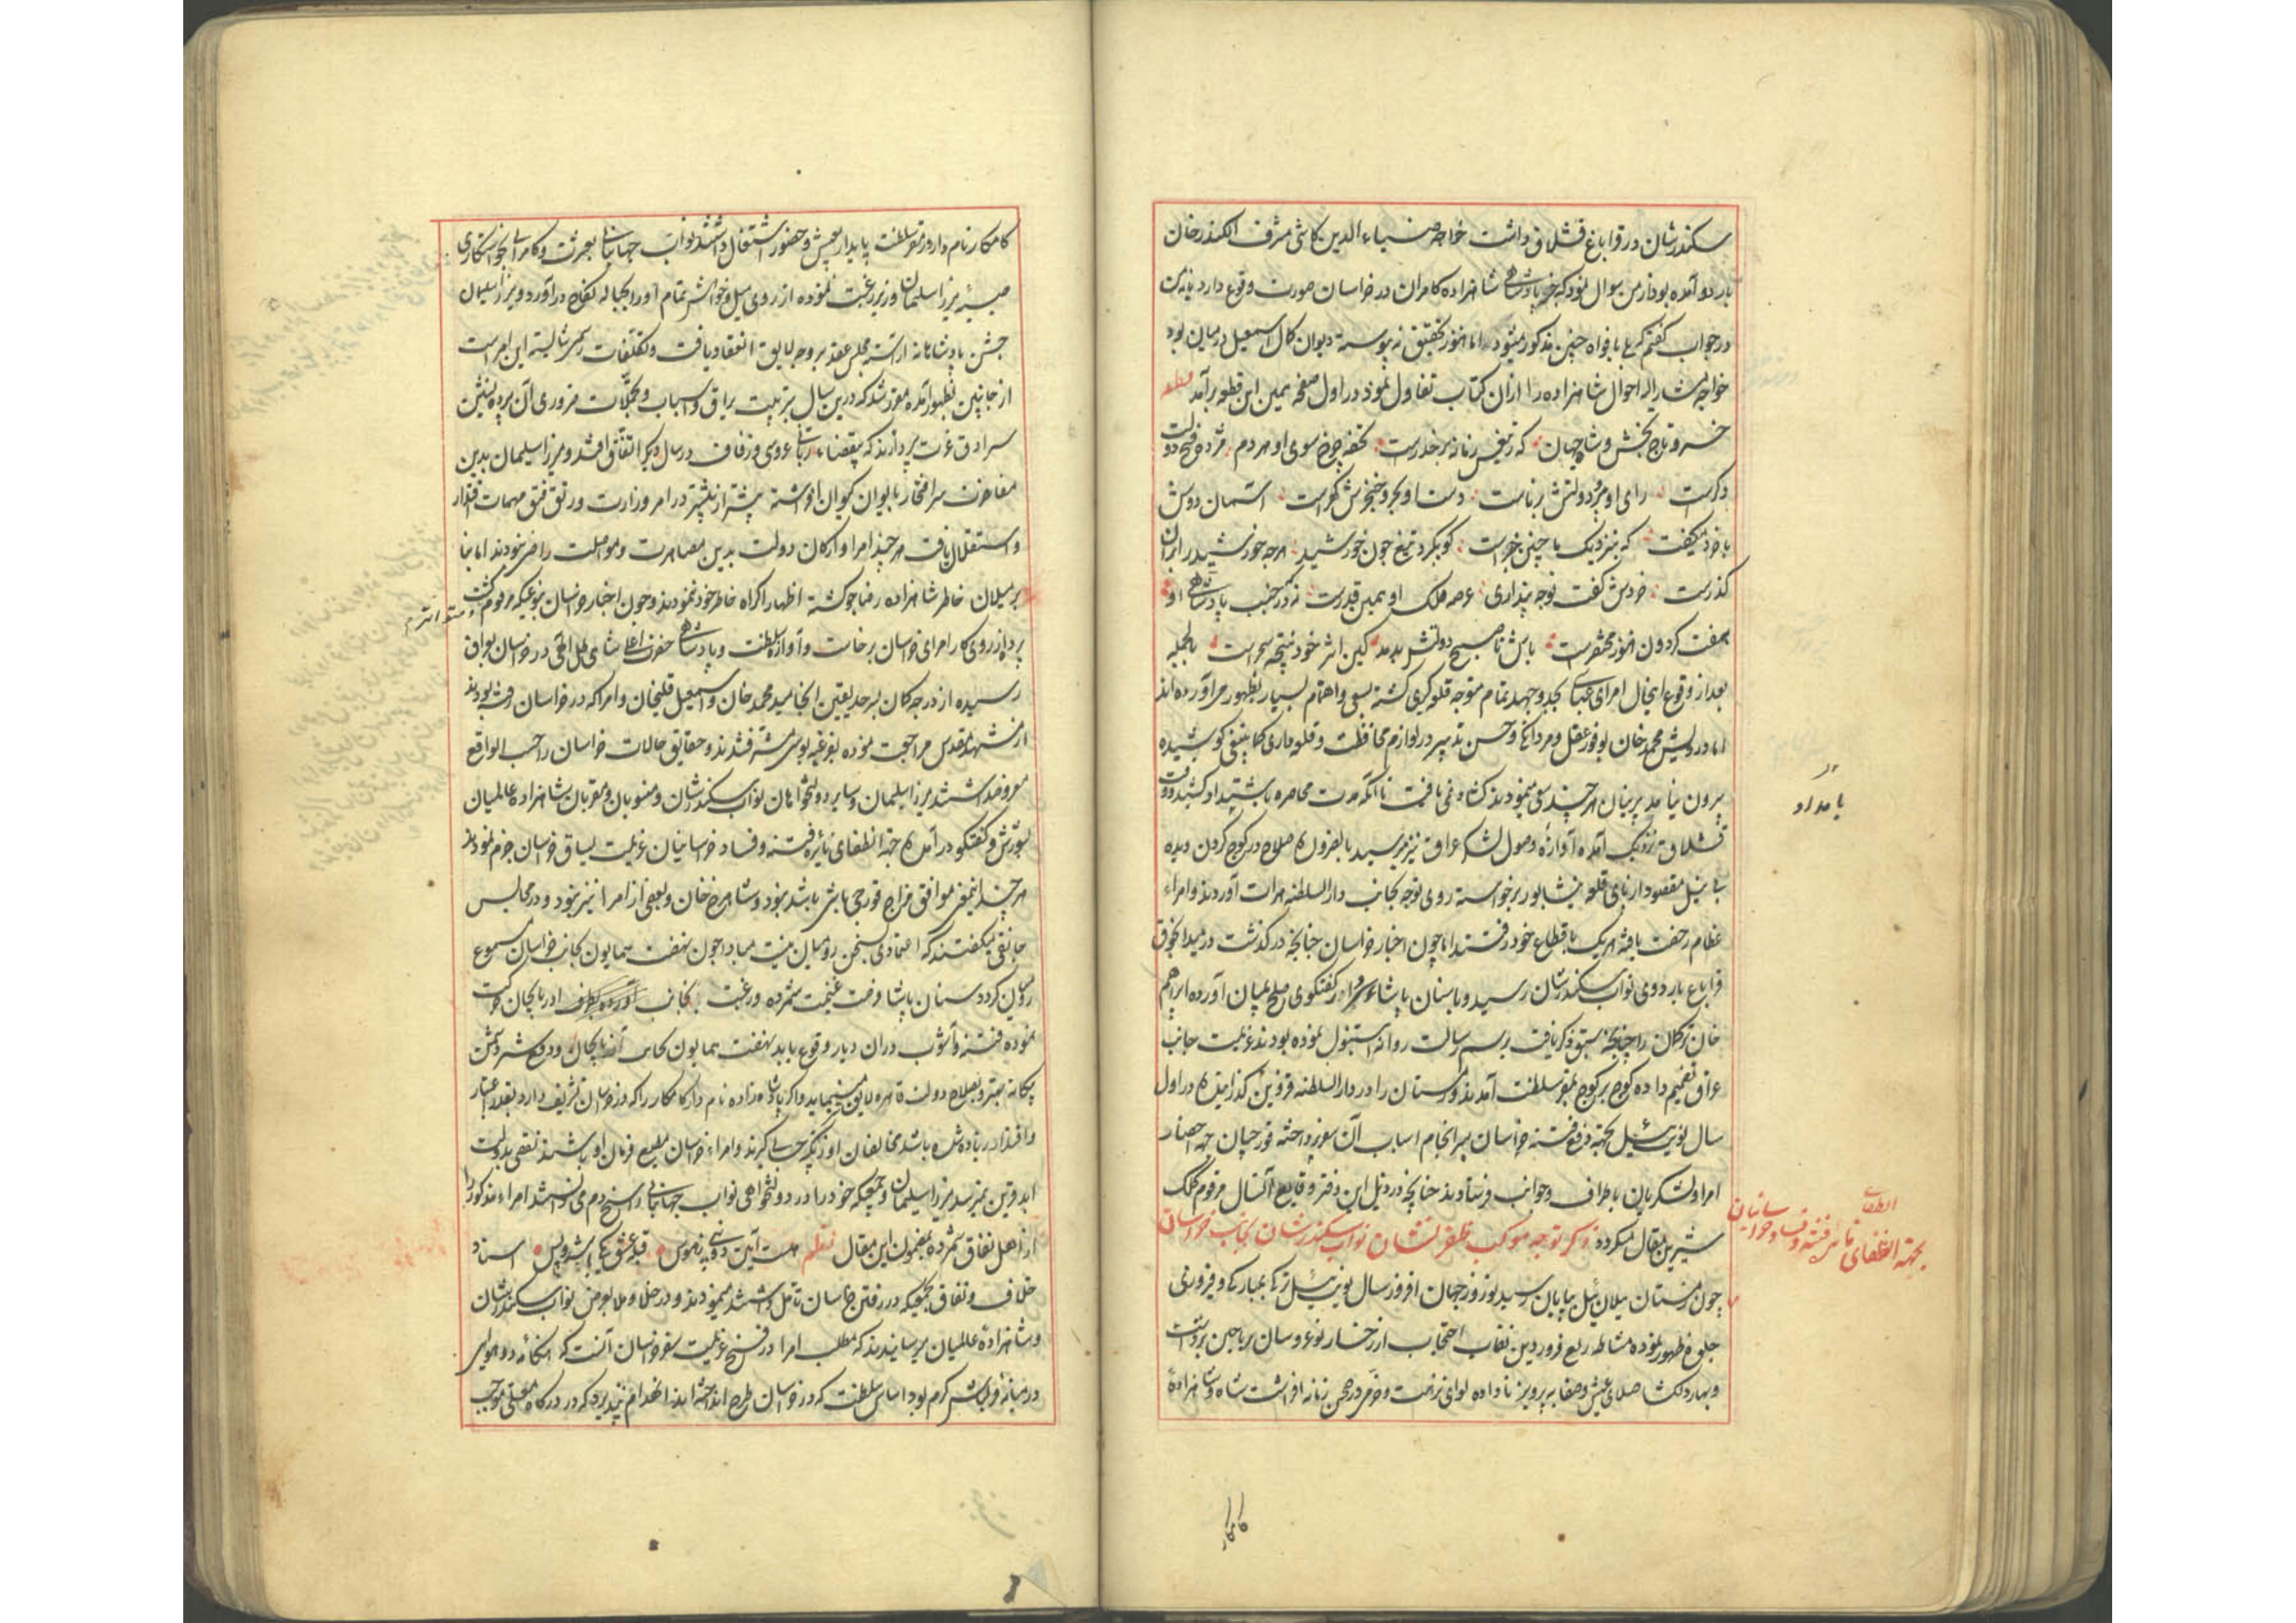 سکندرشان در قراباغ قشلاق داشت خواجه ضیاء الدین کاشی مشرف الکسندرخان
باردو آمده بود از من سوال نمود که خبر پادشاهی شاهزاده کامران در خراسان صورت وقوع دارد یا نه من
در جواب گفتم که بافواه چنین مذکور میشود اما هنوز بتحقیق نه پیوسته دیوان کمال اسمعیل در میان بود
خواجه مشارالیه احوال شاهزاده را ازان کتاب تفاول نمود در اول صفحه یمین این قطعه برآمد قطعه
خسرو تاج بخش و شاه جهان که ز تیغش زمانه بر حذرست تحفه چرخ سوی او هر دم مژده فتح و دولت
دکرست رای او پیر و دولتش برناست دست او بحر و خنجرش گهرست آسمان دوش
با خرد میگفت که بنزدیک ما چنین خبرست کو بگیرد بتیغ چون خورشید هرچه خورشید را بران
گذرست خردش گفت تو چه پنداری عرصه ملک او همین قدرست نه که در جنب پادشاهی او
هفت گردون هنوز مختصرست باش تا صبح دولتش بدمد کین اثر خود نتیجه سحرست بالجمله
بعد از وقوع اینحال امرای عباسی بجد و جهد تمام متوجه قلعه گیری گشته سعی و اهتمام بسیار بظهور می آورده اند
اما درویش محمد خان بوفور عقل و مردانگی و حسن تدبیر در لوازم محافظت و قلعه داری کما ینبغی کوشیده
بیرون نیامد بیرونیان هر چند سعی مینمودند کشاد نمی یافت تا آنکه مدت محاصره بامتداد کشید و وقت
بامداد
قشلاق نزدیک آمده آوازه وصول لشکر عراق نیز میرسید بالضروره صلاح در کوچ کردن دیده
بی نیل مقصود از پای قلعه نیشابور برخواسته روی توجه بجانب دار السلطنه هرات آوردند و امراء
عظام رخصت یافته هر یک باقطاع خود رفتند اما چون اخبار خراسان چنانچه در گذشت در میدانجوق
قراباغ باردوی نواب سکندرشان رسید و با سنان پاشا گفتگوی صلح بمیان آورده ابراهیم
خان ترکمان را چنانچه سبق ذکر یافت برسم رسالت روانه استنبول نموده بودند عزیمت جانب
عراق تصمیم داده کوچ بر کوچ بمقر سلطنت آمدند و زمستان را در دار السلطنه قزوین گذرانیده در اول
سال یونت ئیل بجهة دفع فتنه خراسان سرانجام اسباب آن سفر پرداخته قورچیان جهة احضار
امرا و لشکریان باطراف و جوانب فرستاده چنانچه در ذیل این دفتر وقایع آنسال مرقوم کلک
شیرین مقال میگردد ذکر توجه موکب ظفر نشان نواب سکندرشان بجانب خراسان
بجهة انطفای نائره فتنه و فساد خراسانیان
انطفای
چون زمستان ئیلان ئیل بپایان رسید نوروز جهان افروز سال یونت ئیل ترکی بمبارکی و فیروزی
جلوه ظهور نموده مشاطه ربیع فروردین نقاب احتجاب از رخسار نوعروسان ریاحین برداشت
و بهار دلگشا صلای عیش و صفا به پیر و برنا داده لوای نزهت و خرمی در صحن زمانه افراشت شاه و شاهزاده
کامکار
کامکار نام دار در مقر سلطنت پایدار بعیش و حضور اشتغال داشتند نواب جهانبانی بعشرت و کامرانی خواستگاری
صبیه میرزا سلمان وزیر رغبت نموده از روی میل و خواهش تمام او را بحباله نکاح درآورد و میرزا سلیمان
جشن پادشاهانه آراسته مجلس عقد بر وجه لایق انعقاد یافت و تکلفات رسمی شایسته این امر است
از جانبین بظهور آمده مقرر شد که درین سال بترتیب یراق و اسباب و تجملات ضروری آن پرده نشین
سرادق عزت پردازند که بمقتضاء ربانی عروسی و زفاف در سال دیگر اتفاق افتد و میرزا سلیمان بدین
مفاخرت سر افتخار بایوان کیوان افراشته بیشتر از پیشتر در امر وزارت و رتق و فتق مهمات اقتدار
و استقلال یافت هر چند امرا و ارکان دولت بدین مصاهرت و مواصلت راضی نبودند اما بنا
بر میلان خاطر شاهزاده رضاجو گشته اظهار اکراه خاطر خود ننمودند و چون اخبار خراسان بنوعیکه مرقوم گشت
پرده از روی کار امرای خراسان برخاست و آوازه سلطنت و پادشاهی حضرت اعلی شاهی ظل اللهی در خراسان بعراق
رسیده از درجه گمان بسر حد یقین انجامید محمد خان و اسمعیل قلیخان و امرا که در خراسان رفته بودند
از مشهد مقدس مراجعت نموده بغز عتبه بوسی مشرف شدند و حقایق حالات خراسان را حسب الواقع
معروضداشتند میرزا سلیمان و سایر دولتخواهان نواب سکندرشان و منسوبان و مقربان شاهزاده عالمیان
بشورش و گفتگو درآمده جهة انطفای نائره فتنه و فساد خراسانیان عزیمت یساق خراسان جزم نمودند
هر چند اینمعنی موافق مزاج قورچی باشی باشد نبود و شاهرخ خان و بعضی از امرا نیز نبود و در مجالس
جانقی میگفتند که اعتمادی بسخن رومیان نیست مبادا چون نهضت همایون بجانب خراسان مسموع
رومیان گردد سنان پاشا فرصت غنیمت شمرده و رغبت بجانب اذربایجان حرکت
نموده فتنه و آشوب دران دیار وقوع یابد نهضت همایون بجانب آذربایجان و دفع شر دشمن
بیگانه بهتر و بصلاح دولت قاهره لایق تر مینماید و اگر پادشاه زاده نام دار کامکار را که در خراسان تشریف دارد بقدر اعتبار
و اقتدار زیاده شده باشد مخالفان اوزبکیه حسابی گیرند و امراء خراسان مطیع فرمان او باشند نقصی بدولت
ابد قرین نمیرسد میرزا سلیمان و جمعیکه خود را در دولتخواهی نواب جهانبانی راسخ دم میدانستند امراء مذکور را
از اهل نفاق شمرده بمضمون این مقال نظم هست آیین دوبینی ز هوس قبله عشق یکی باشد و بس اسناد
خلاف و نفاق بجمعیکه در رفتن خراسان تامل داشتند مینمودند و در خلا و ملا بعرض نواب سکندرشان
و شاهزاده عالمیان میرسانیدند که مطلب امرا در فسخ عزیمت سفر خراسان آنست که هنگامه دو هوایی
در میانه قزلباش گرم بود اساس سلطنت که در خراسان طرح انداخته اند انهدام نپذیرد که در درگاه معلی موجب